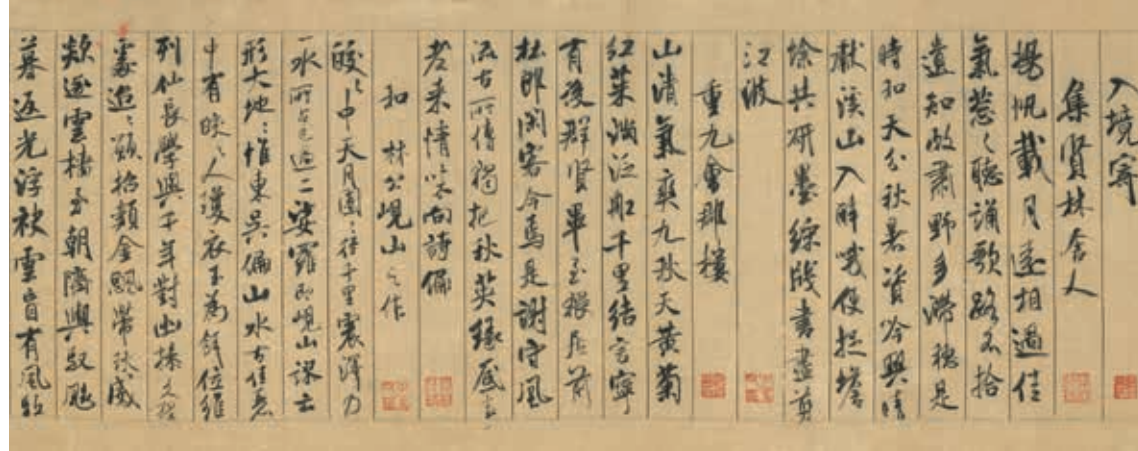 入境寄
集賢林舍人
揚帆載月遠相過佳
氣蔥々聽誦歌路不拾
遺知政肅野多滯穗是
時和天分秋暑資吟興晴
獻溪山入醉哦便捉蟾
蜍共研墨綵牋書盡剪
江波
重九會郡樓
山清氣爽九秋天黃菊
紅茱滿泛船千里結言寧
有後群賢畢至猥居前
杜郎閑客今焉是謝守風
流古所傳獨把秋英緣底事
老來情味向詩偏
和林公峴山之作
皎々中天月團々徑千里震澤乃
一水所占已過二娑羅即峴山謬云
形大地々惟東吳偏山水古佳麗
中有皎々人瓊衣玉為餌位維
列仙長學與千年對幽操久獨
處迢々願招類金飈帶秋威
欻逐雲檣至朝隮輿馭飈
暮返光浮袂雲盲有風駈